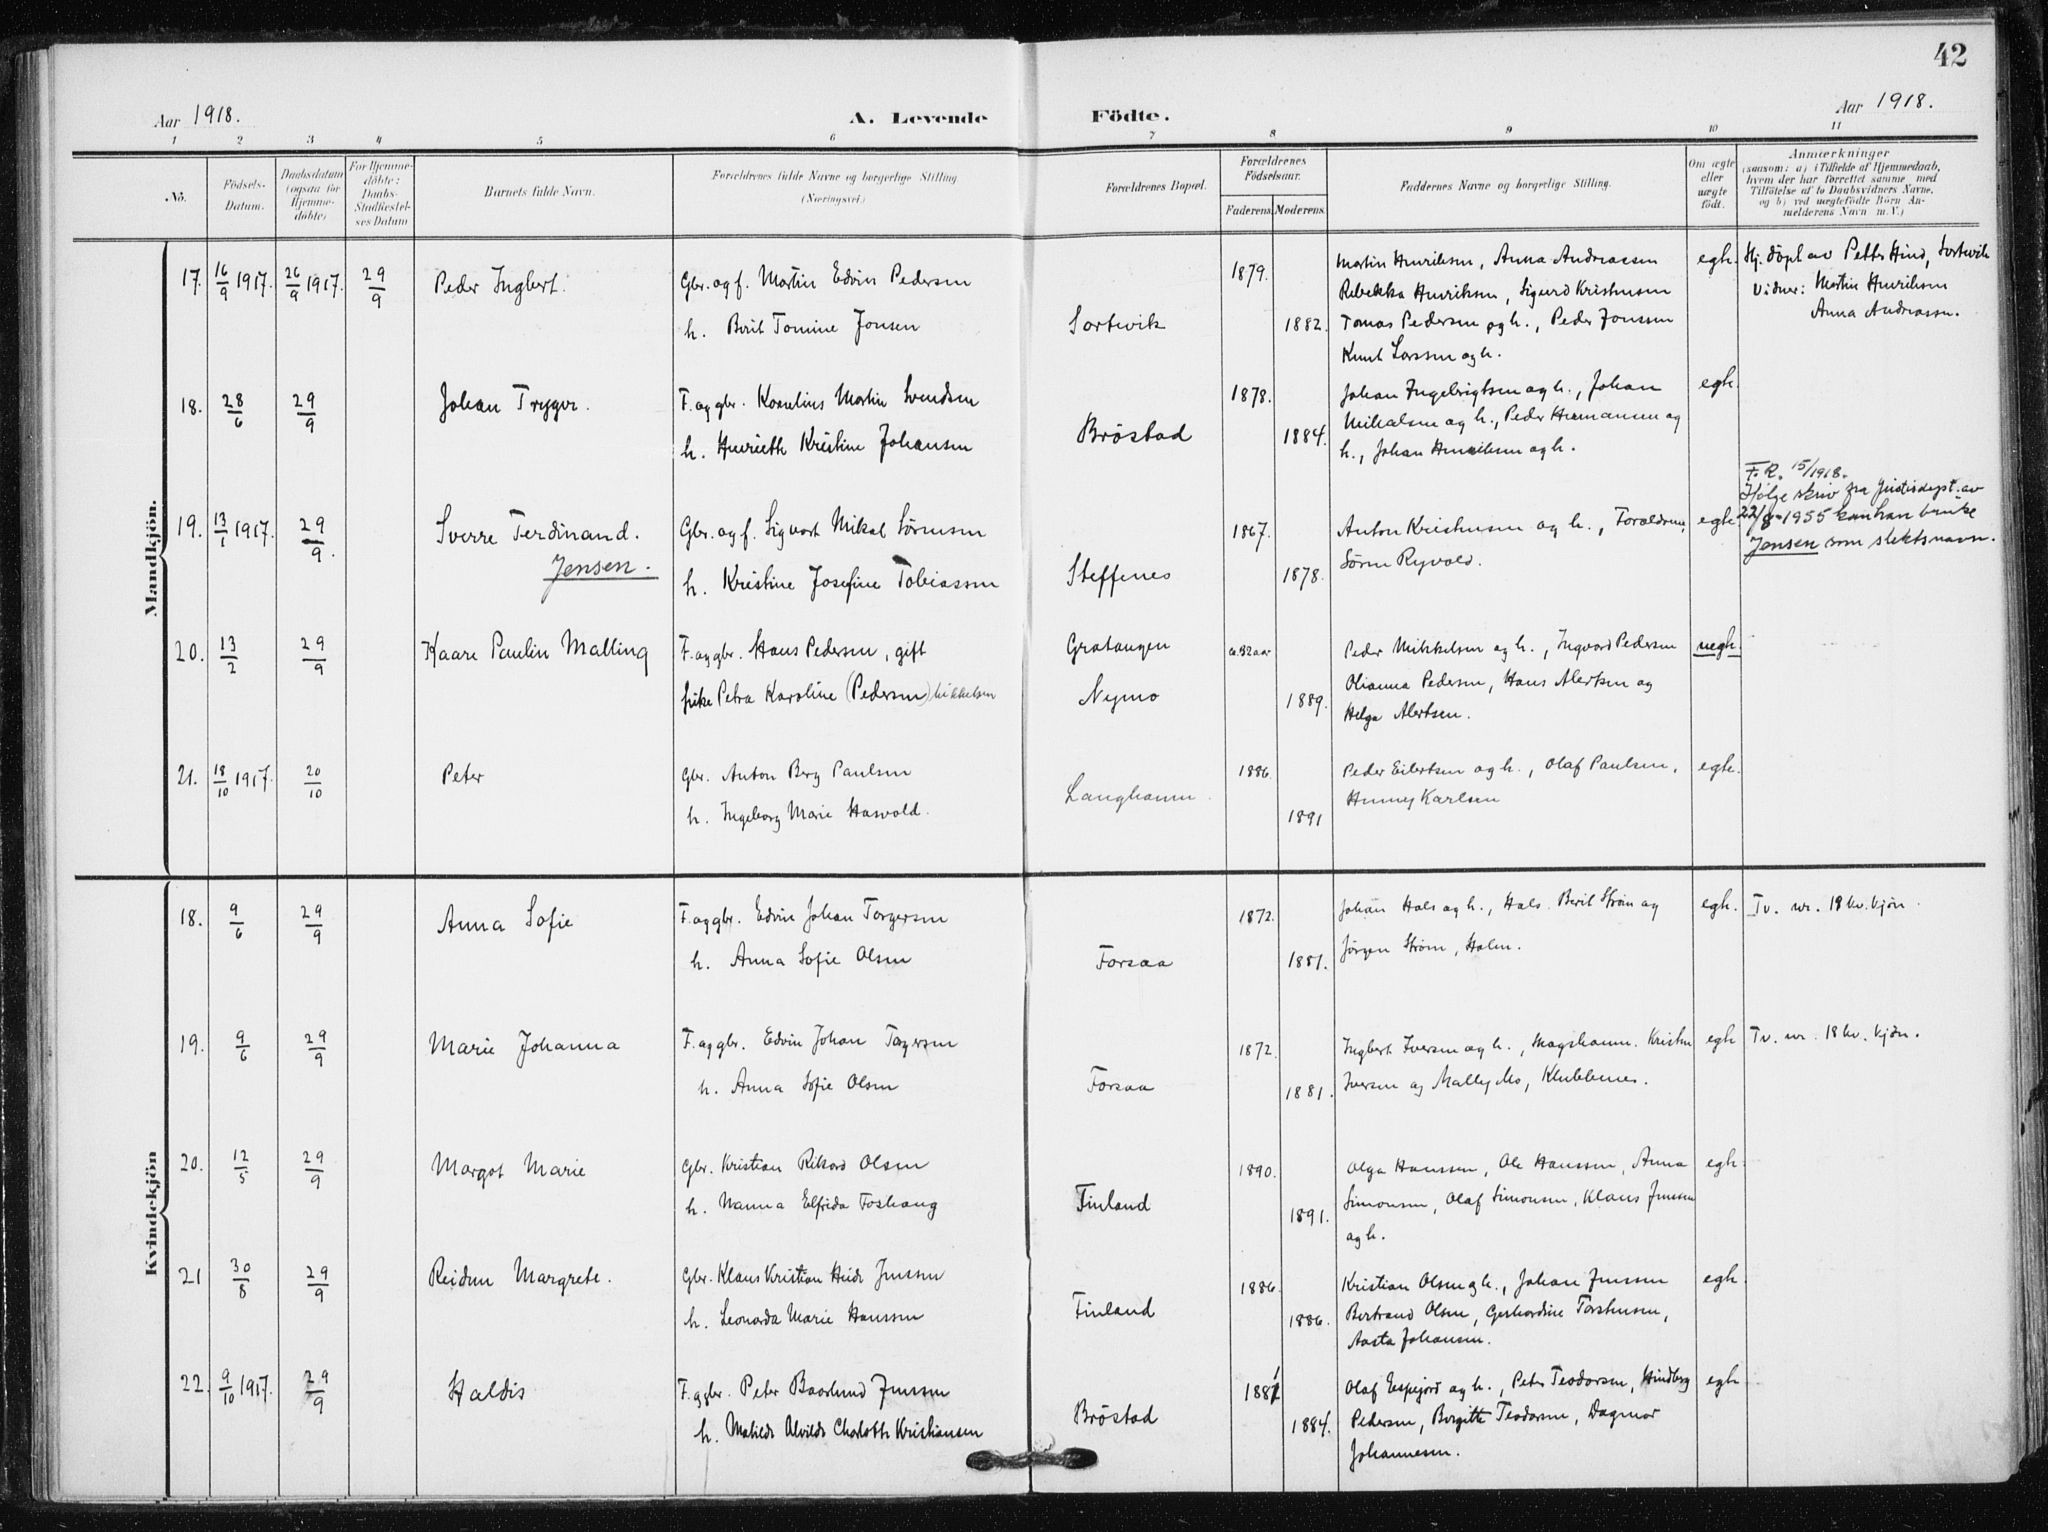 42
Aar 1918. A. Levende Födte. Aar 1918.
1 2 3 4 5 6 7 8 9 10 11
No.
Födsels-Datum.
Daabsdatum (ogsaa for Hjemmedöbte)
For Hjemmedöbte: Daabs-Stadfæstelses Datum
Barnets fulde Navn.
Forældrenes fulde Navne og borgerlige Stilling (Næringsvei.)
Forældrenes Bopæl.
Forældrenes Födselsaar.
Faderens. Moderens.
Faddernes Navne og borgerlige Stilling.
Om ægte eller uægte födt.
Anmærkninger
(saasom: a) i Tilfælde af Hjemmedaab,
hvem der har forrettet samme med
Tilföielse af to Daabsvidners Navne,
og b) ved uægtefödte Börn An-
melderens Navn m. V.)
Mandkjön.
17. 16/9 1917. 26/9 1917. 29/9 Peder Ingbert. Gbr. og f. Martin Edvin Pedersen 1879. Martin Henriksen, Anna Andreassen egh. Hj. döpt av Petter Hind, Sortevik
Rebekka Henriksen, Sigurd Kristensen Vidner: Martin Henriksen
h. Berit Tomine Jonsen Sortevik 1882. Tomas Pedersen og h., Peder Jonssen Anna Andreassen.
Knut Larssen og h.
18. 28/6 29/9 Johan Trygve. F. og gbr. Kornelius Martin Svendsen 1878. Johan Ingebrigtsen og h., Johan egh.
h. Henriette Kristine Johansen Bröstad 1884. Mikalsen og h., Peder Hermansen og
h., Johan Henriksen og h.
F. R. 15/1918.
Ifølge skriv fra Justisdept. av
19. 13/1 1917. 29/9. Sverre Ferdinand. Gbr. og f. Sigvart Mikal Sörensen 1867. Anton Kristensen og h., Forældrene, egh. 22/8-1955 kan han bruke
Jensen. h. Kristine Josefine Tobiassen Steffenes 1878. Sören Ryvold. Jensen som slektsnavn.
20. 13/2 29/9 Kaare Paulin Malling F. og gbr. Hans Pedersen, gift Gratangen ca. 32 aar Peder Mikkelsen og h., Ingvard Pedersen uegh.
pike Petra Karoline (Pedersen) Mikkelsen Nymo 1889. Olianna Pedersen, Hans Alertsen og
Helga Alertsen.
21. 18/10 1917. 20/10 Peter Gbr. Anton Berg Paulsen 1886. Peder Eilertsen og h., Olaf Paulsen, egh.
h. Ingeborg Marie Hasvold. Langhamn. 1891 Henny Karlsen
Kvindekjön
18. 9/6 29/9 Anna Sofie F. og gbr. Edvin Johan Torgersen 1872. Johan Hals og h., Hals. Berit Ström og egh. Tv. nr. 19 kv. kjön.
h. Anna Sofie Olsen Forsaa 1881. Jörgen Ström, Holm.
19. 9/6 29/9 Marie Johanna F. og gbr. Edvin Johan Torgersen 1872. Ingbert Iversen og h., Mogshamn. Kristen egh Tv. nr. 18 kv. kjön.
h. Anna Sofie Olsen Forsaa 1881. Iversen og Mally Mo, Klubbenes.
20. 12/5 29/9 Margot Marie Gbr. Kristian Rikard Olsen 1890. Olga Hanssen, Ole Hanssen, Anna egh.
h. Nanna Elfrida Foshaug Finland 1891. Simonsen, Olaf Simonsen, Klaus Jenssen
og h.
21 30/8 29/9 Reidun Margrete. Gbr. Klaus Kristian Heide Jenssen 1886. Kristian Olsen og h., Johan Jenssen egh.
h. Leonarda Marie Hanssen Finland 1886. Bertrand Olsen, Gerhardine Torstensen,
Aasta Johansen.
22. 9/10 1917. 29/9 Haldis F. og gbr. Peter Baarlund Jenssen 1881 Olaf Espejord og h., Peter Teodorsen, Hindberg egh
h. Matilde Alvilde Charlotte Kristiansen Bröstad 1884. Pedersen, Birgitte Teodorsen, Dagmar
Johannesen.